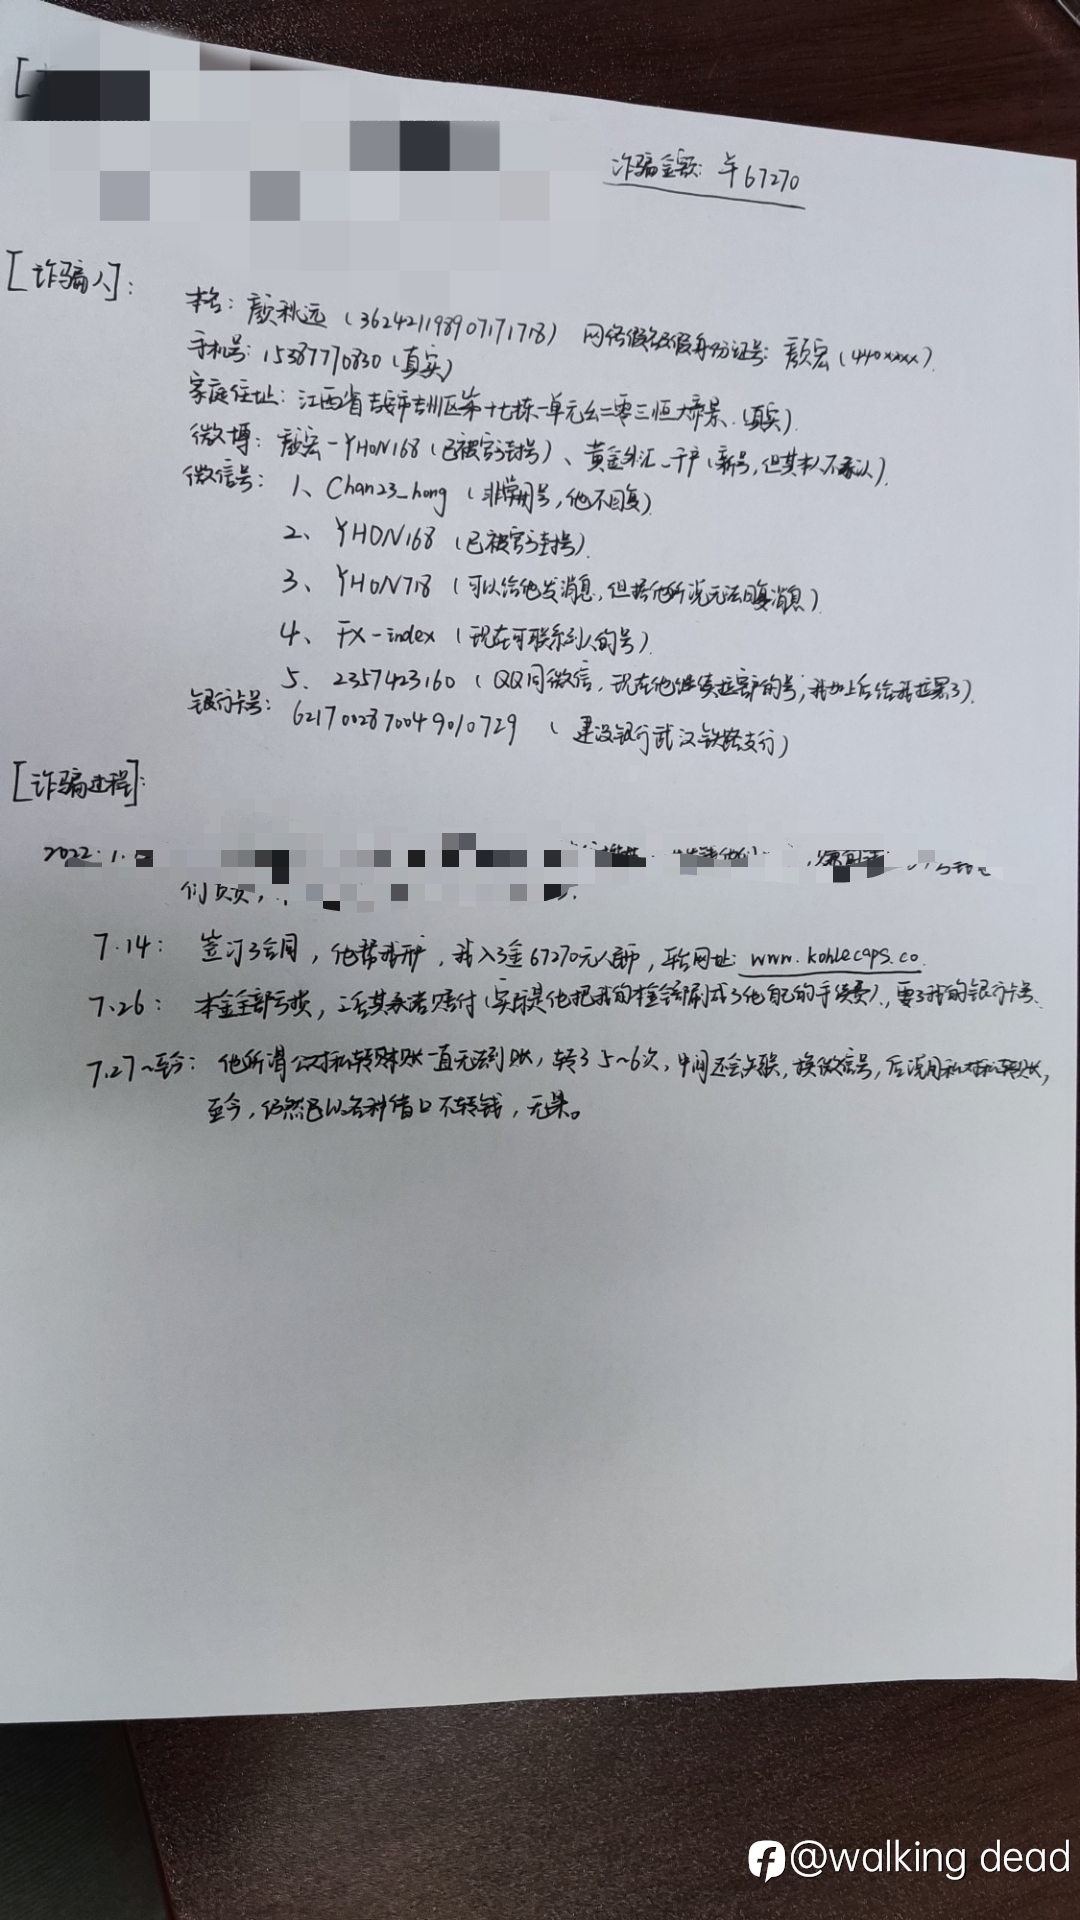 诈骗金额：￥67270
[诈骗人]：
本名：颜秋远（362421198907171718） 网络假名及假身份证号：颜宏（440xxxx）
手机号：15387770830（真实）
家庭住址：江西省吉安市吉州区第十七栋一单元二零三恒大帝景（真实）
微博：颜宏-YHON168（已被官方封号）、黄金外汇（新号，但其本人不承认）
微信号：1、Chan23_hong（非常用号，他不回复）
2、YHON168（已被官方封号）
3、YHON718（可以给他发消息，但据他所说无法回复消息）
4、FX-index（现在可联系到人的号）
5、2357423160（QQ同微信，现在他继续拉客户的号；我加上后给我拉黑了）
银行卡号：6217002870049010729（建设银行武汉铁路支行）
[诈骗过程]：
2022.1.
7.14：签订了合同，他帮我开户，我入了金67270元人民币，平台网址：www.kohlecaps.co
7.26：本金全部亏损，其承诺赔付（实际是他把我的本金全部刷成了他自己的手续费），要了我的银行卡号
7.27~至今：他所谓公对私转账账一直无法到账，转了5~6次，中间还会失联，换微信号，后说用私对私转账，
至今，仍然以各种借口不转钱，无果。
@walking dead